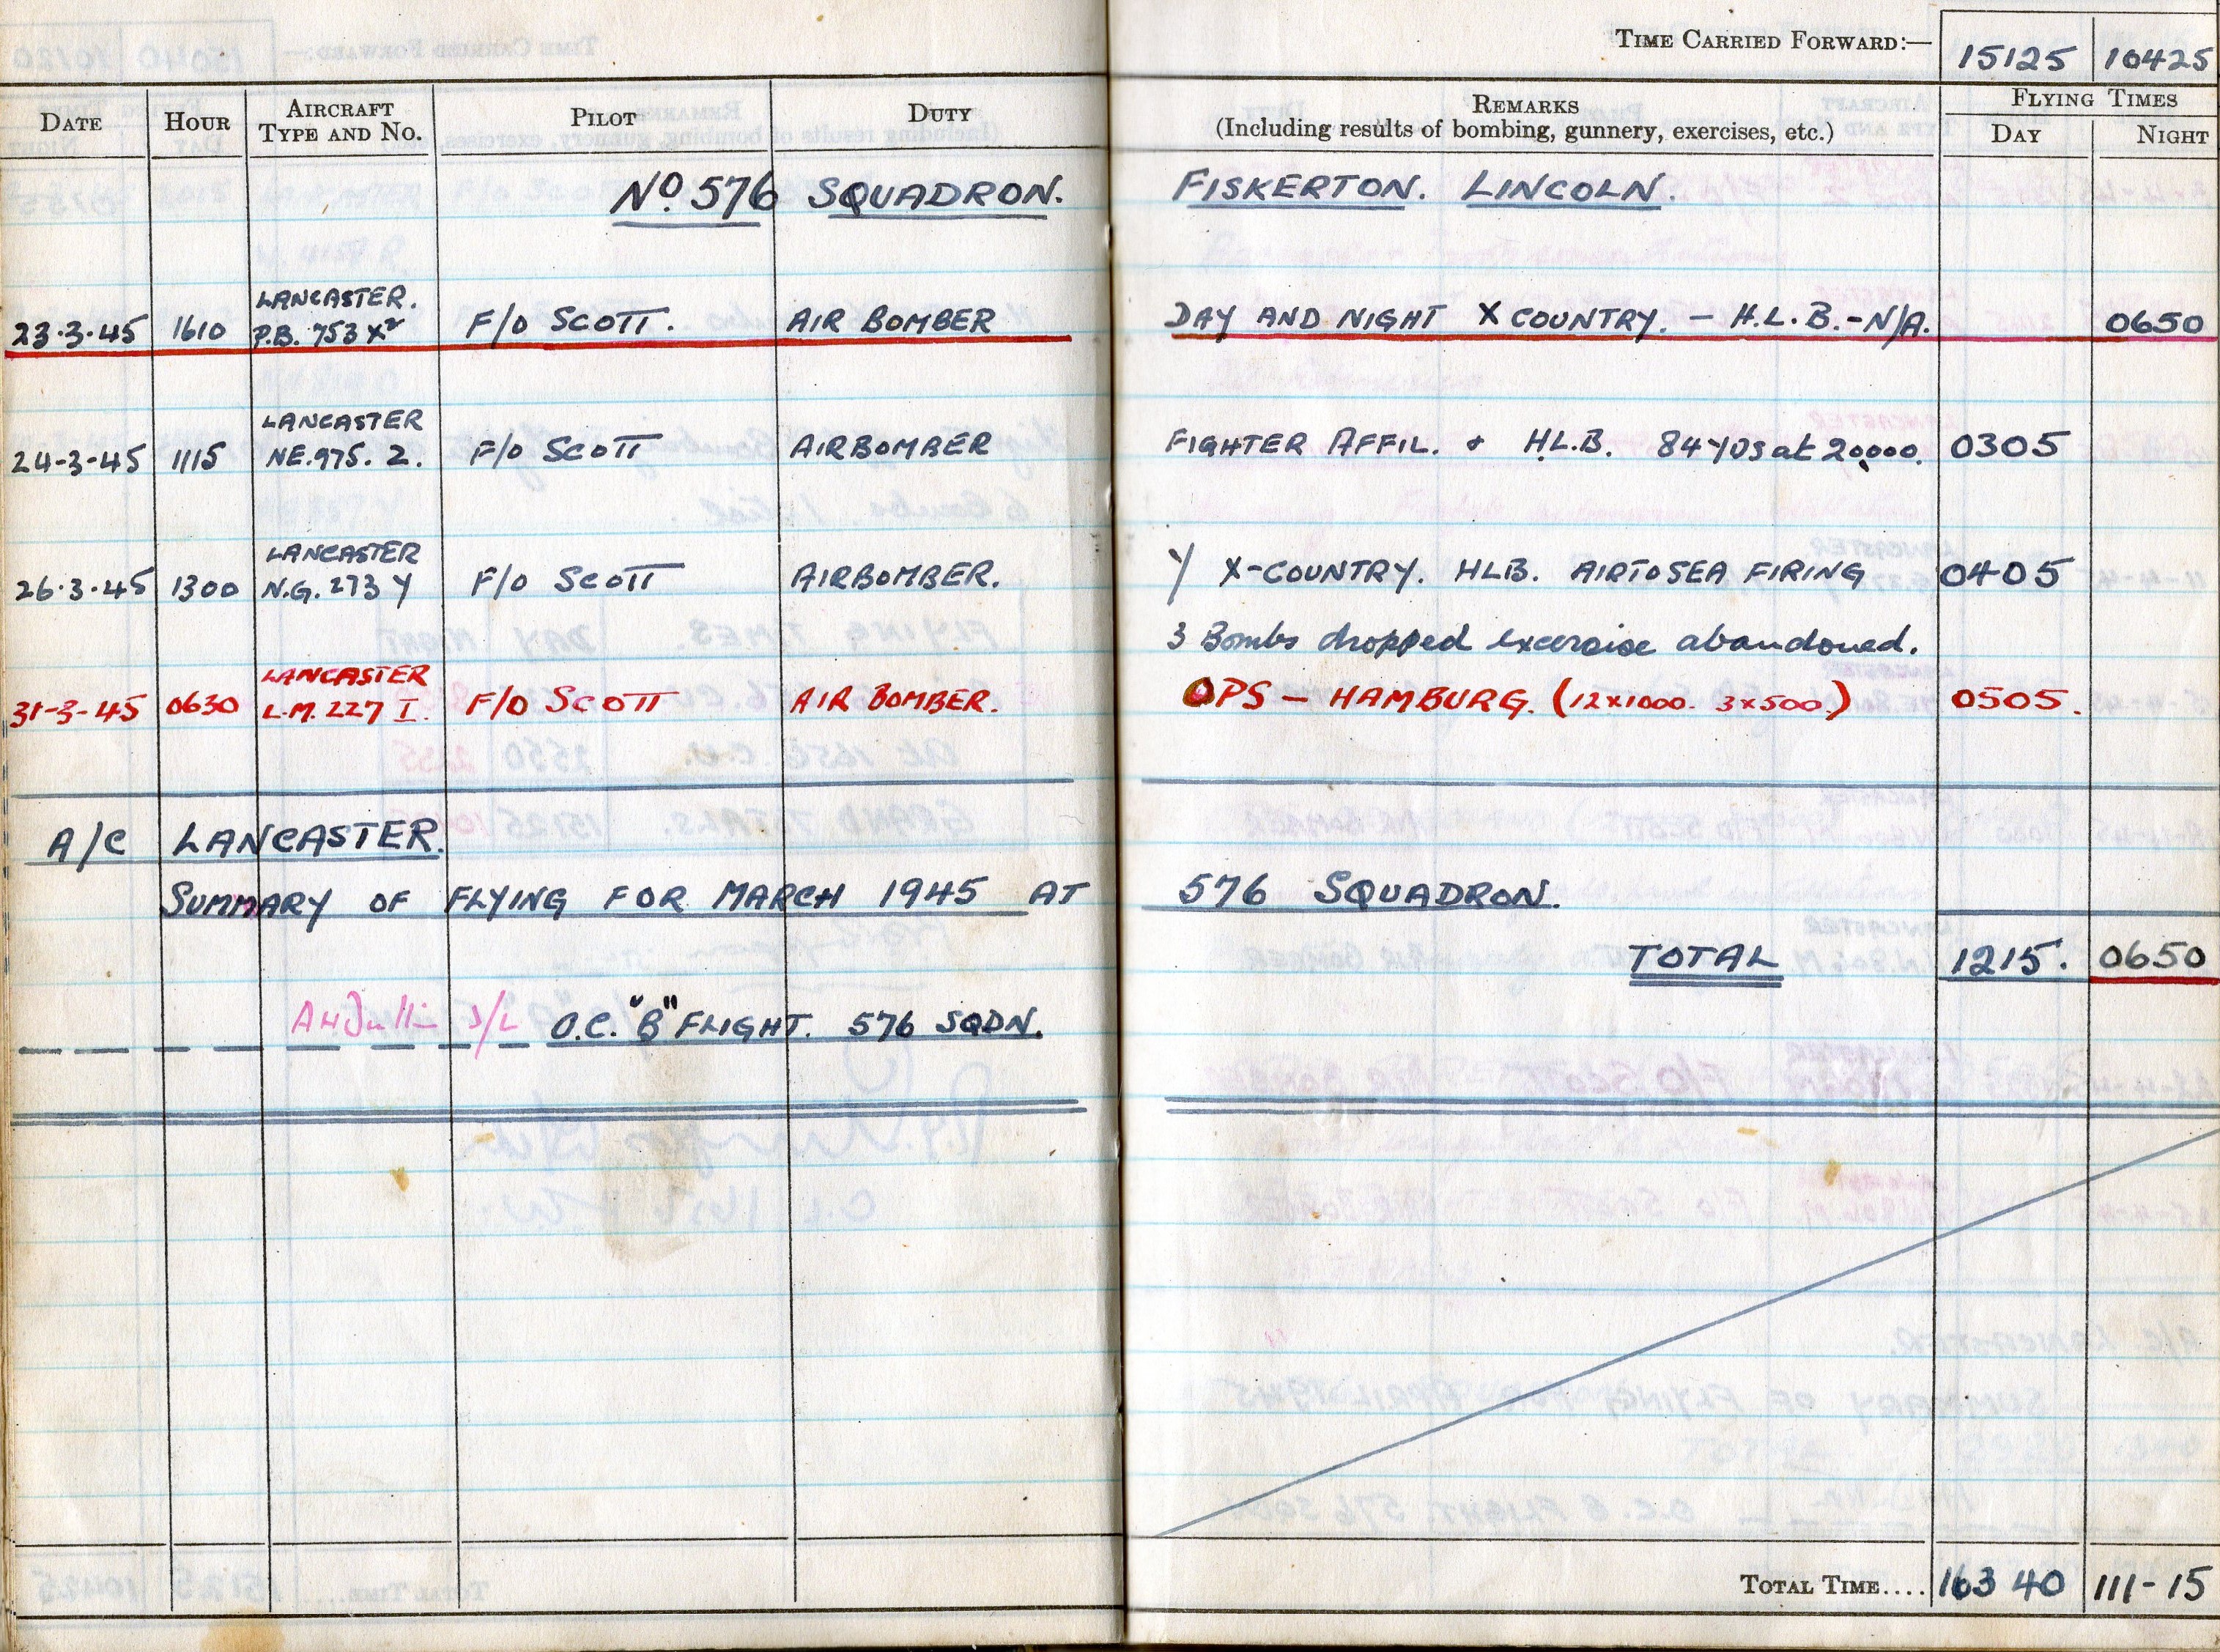 TIME CARRIED FORWARD:— 15125 10425
DATE HOUR AIRCRAFT TYPE AND NO. PILOT DUTY REMARKS (Including results of bombing, gunnery, exercises, etc.) FLYING TIMES DAY NIGHT
No. 576 SQUADRON. FISKERTON. LINCOLN.
23·3·45 1610 LANCASTER. P.B. 753 X² F/O SCOTT. AIR BOMBER DAY AND NIGHT X COUNTRY. — H.L.B.-N/A. 0650
24-3-45 1115 LANCASTER NE.975. Z. F/O SCOTT AIRBOMBER FIGHTER AFFIL. & H.L.B. 84 YDS at 20,000. 0305
26·3·45 1300 LANCASTER N.G. 273 Y F/O SCOTT AIRBOMBER. Y X-COUNTRY. HLB. AIR TO SEA FIRING 0405
3 Bombs dropped excersise abandoned.
31-3-45 0630 LANCASTER L.M. 227 I. F/O SCOTT AIR BOMBER. OPS — HAMBURG. (12x1000. 3x500.) 0505.
A/C LANCASTER.
SUMMARY OF FLYING FOR MARCH 1945 AT 576 SQUADRON.
TOTAL 1215. 0650
S/L O.C. "B" FLIGHT. 576 SQDN.
TOTAL TIME.... 163 40 111-15